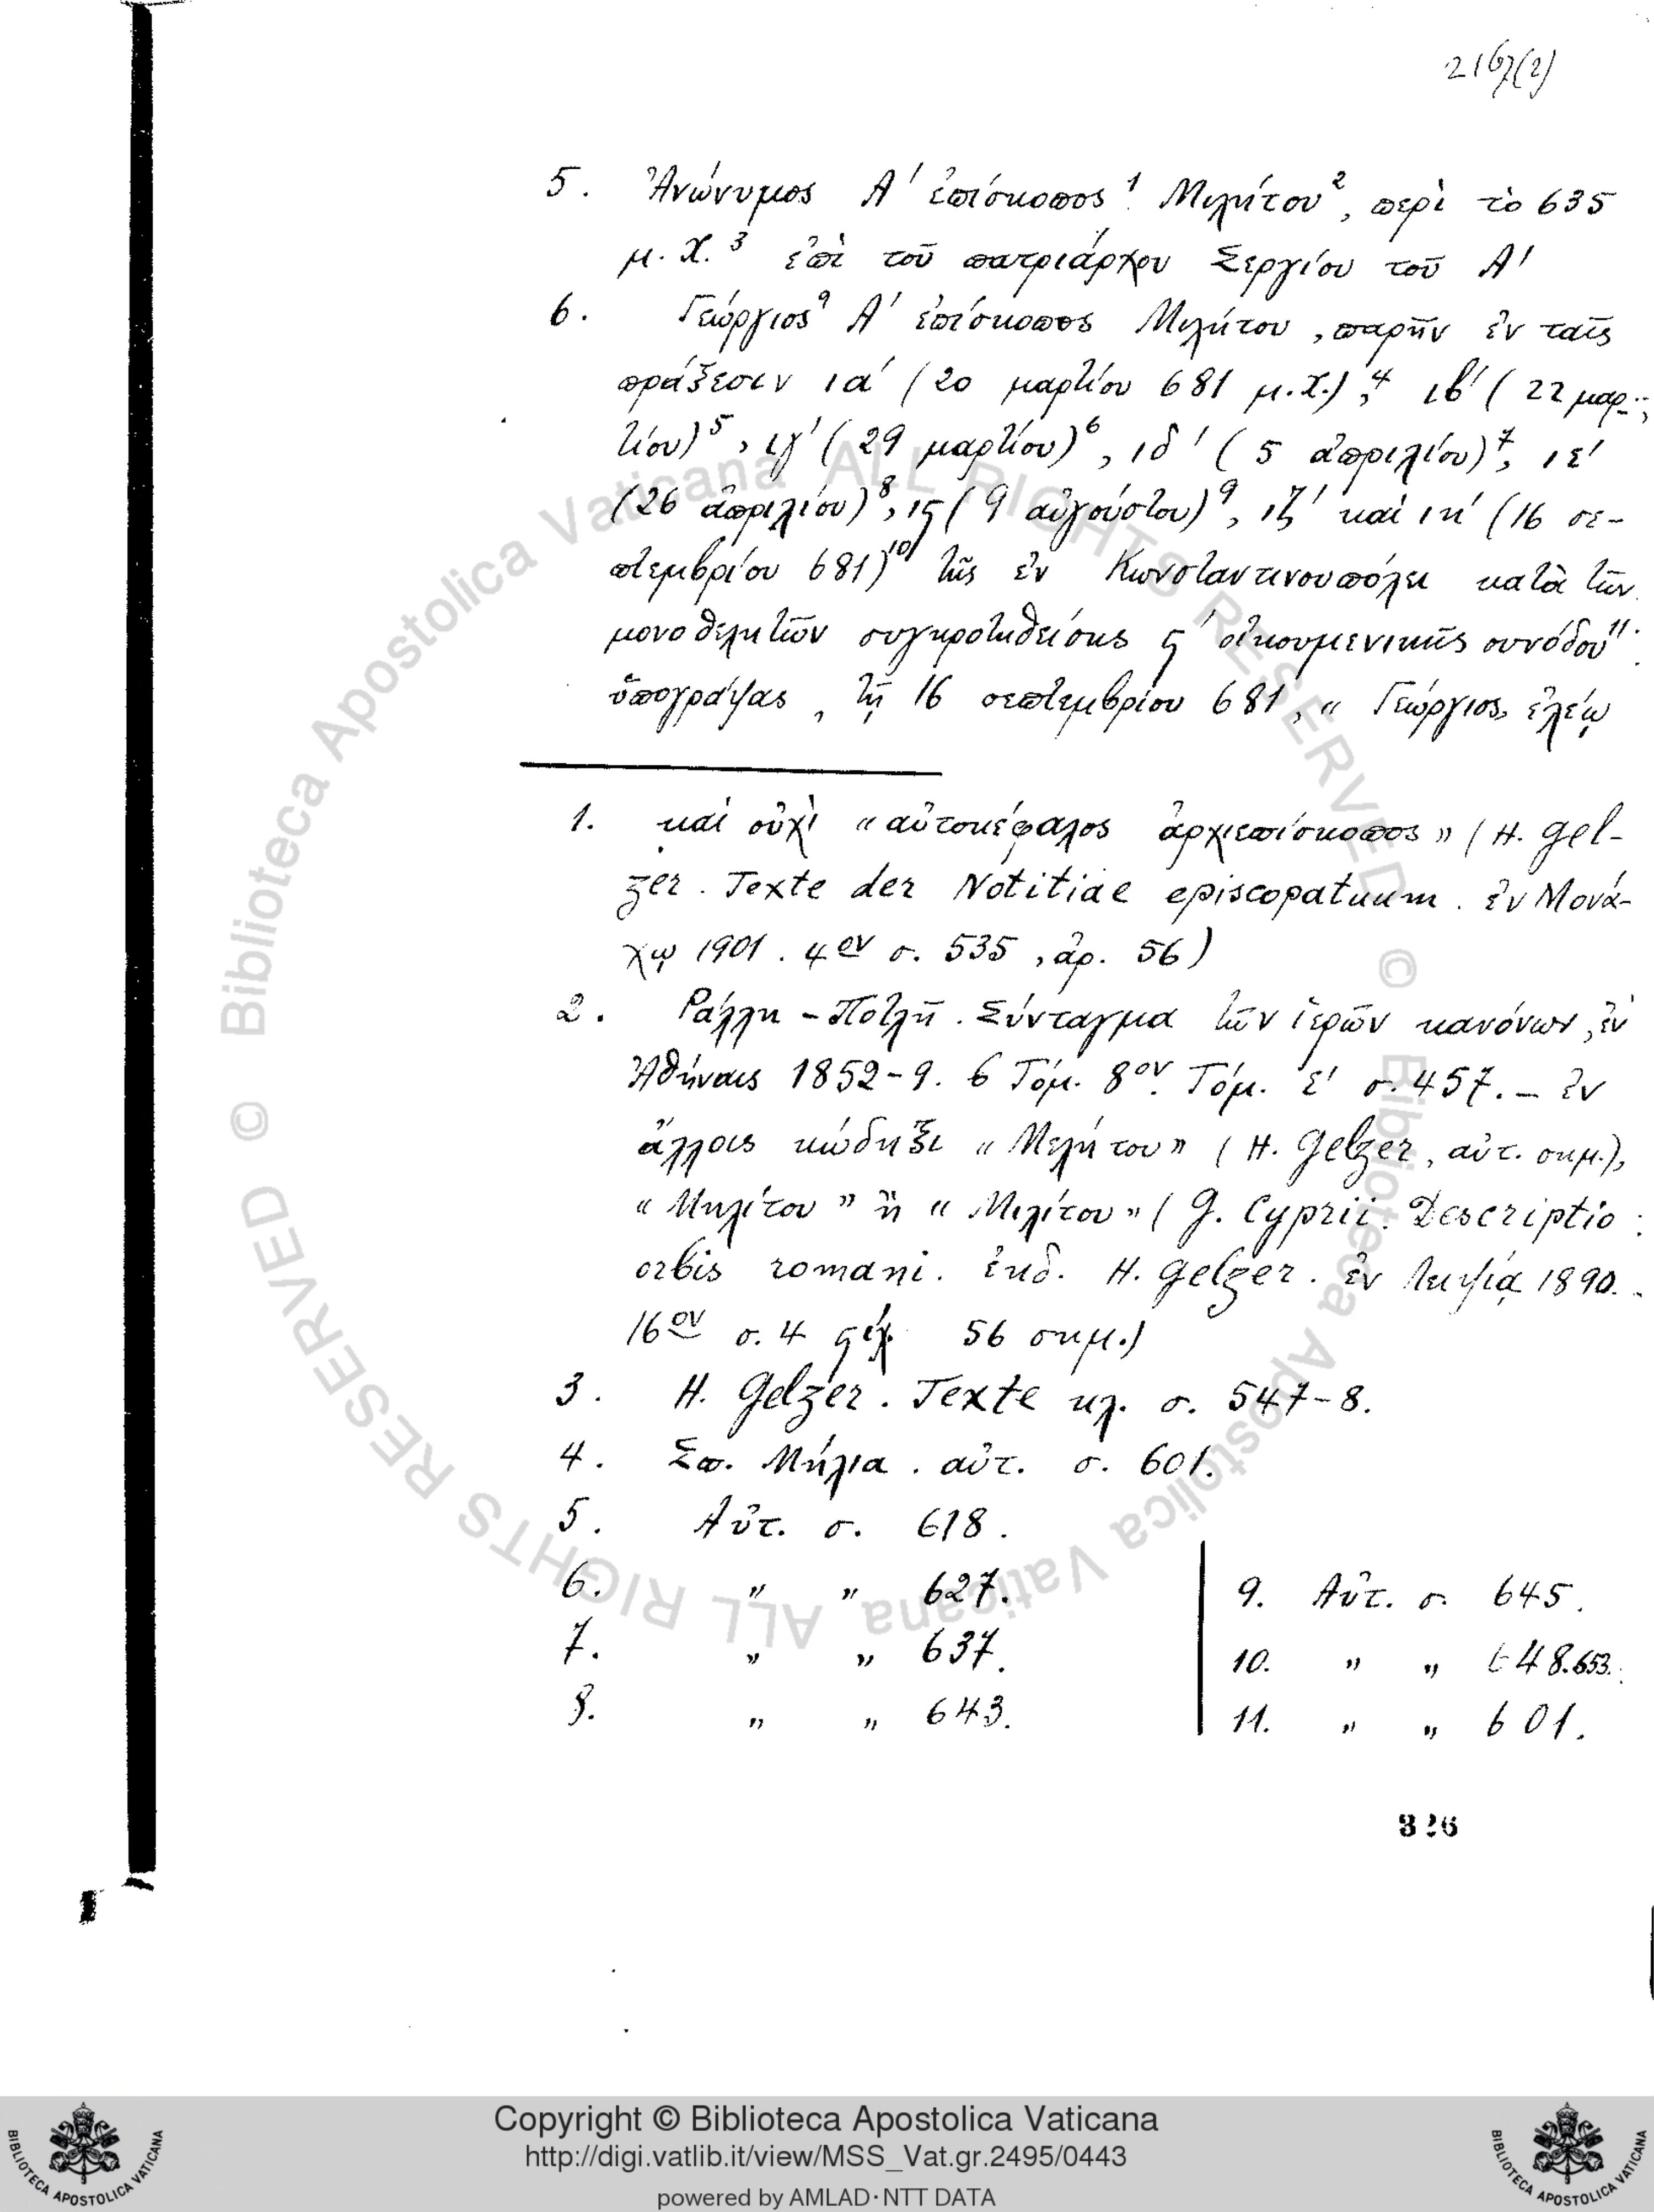 2167(2)
5. Ἀνώνυμος Α' ἐπίσκοπος¹ Μιλήτου², περὶ τὸ 635
μ. Χ.³ ἐπὶ τοῦ πατριάρχου Σεργίου τοῦ Α'
6. Γεώργιος⁹ Α' ἐπίσκοπος Μιλήτου, παρῆν ἐν ταῖς
πράξεσιν ια' (20 μαρτίου 681 μ.Χ.)⁴, ιβ' (22 μαρ-
τίου)⁵, ιγ' (29 μαρτίου)⁶, ιδ' (5 ἀπριλίου)⁷, ιε'
(26 ἀπριλίου)⁸, ιϛ (9 αὐγούστου)⁹, ιζ' καὶ ιη' (16 σε-
πτεμβρίου 681)¹⁰ τῆς ἐν Κωνσταντινουπόλει κατὰ τῶν
μονοθελητῶν συγκροτηθείσης ϛ' οἰκουμενικῆς συνόδου¹¹·
ὑπογράψας, τῇ 16 σεπτεμβρίου 681, « Γεώργιος ἐλέῳ
1. καὶ οὐχὶ « αὐτοκέφαλος ἀρχιεπίσκοπος » (H. Gel-
zer. Texte der Notitiae episcopatuum. ἐν Μονά-
χῳ 1901. 4ον σ. 535, ἀρ. 56)
2. Ράλλη - Ποτλῆ. Σύνταγμα τῶν ἱερῶν κανόνων, ἐν
Ἀθήναις 1852-9. 6 Τόμ. 8ον. Τόμ. ε' σ. 457. — ἐν
ἄλλοις κώδηξι « Μελήτου » (H. Gelzer, αὐτ. σημ.),
« Μηλίτου » ἢ « Μιλίτου » (G. Cyprii. Descriptio
orbis romani. ἐκδ. H. Gelzer. ἐν Λειψίᾳ 1890.
16ον σ. 4 56 σημ.)
3. H. Gelzer. Texte κλ. σ. 547-8.
4. Σπ. Μήλια. αὐτ. σ. 601.
5. Αὐτ. σ. 618.
6. " " 627.
7. " " 637.
8. " " 643.
9. Αὐτ. σ. 645.
10. " " 648.653.
11. " " 601.
326
© Biblioteca Apostolica Vaticana ALL RIGHTS RESERVED © Biblioteca Apostolica Vaticana ALL RIGHTS RESERVED
Copyright © Biblioteca Apostolica Vaticana
http://digi.vatlib.it/view/MSS_Vat.gr.2495/0443
powered by AMLAD·NTT DATA
BIBLIOTECA APOSTOLICA VATICANA
BIBLIOTECA APOSTOLICA VATICANA